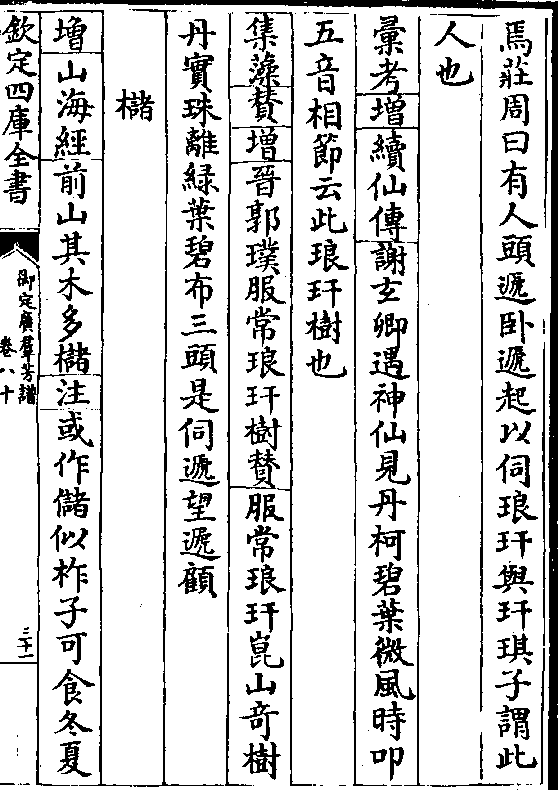 焉莊周曰有人頭遞卧遞起以伺琅玕與玕琪子謂此
人也
彙考增續仙傳謝𤣥卿遇神仙見丹柯碧葉微風時叩
五音相節云此琅玕樹也
集藻賛增晉郭璞服常琅玕樹賛服常琅玕崑山竒樹
丹實珠離緑葉碧布三頭是伺遞望遞顧
櫧
增山海經前山其木多櫧注或作儲似柞子可食冬夏
欽定四庫全書
御定廣羣芳譜
卷八十
三十一